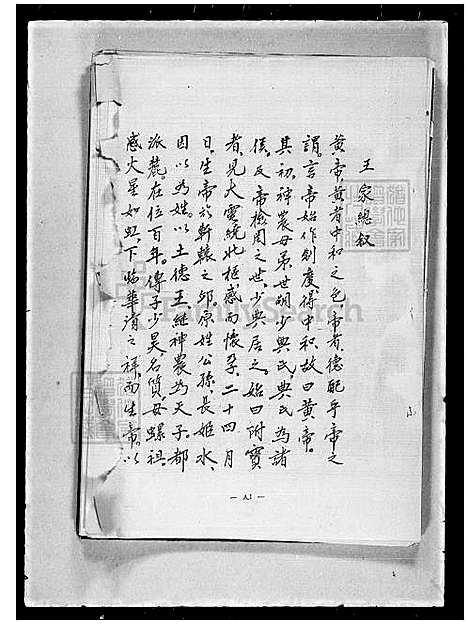 王家總叙
黃帝,黃者中和之色,帝者,德配乎帝之
謂。言帝始作制度得中和,故曰黃帝。
其初,神農母弟世嗣少典氏,典氏為諸
侯。及帝榆罔之世,少典居之。始曰附寶
者,見大電繞北樞,感而懷孕。二十四月
日,生帝於軒轅之邱。原姓公孫,長姬水,
因以為姓。以土德王,继神農為天子。都
涿鹿。在位百年。傳子少昊名質,母螺祖,
感火星如虹,下臨華渚之祥,而生帝。以
FamilySearch